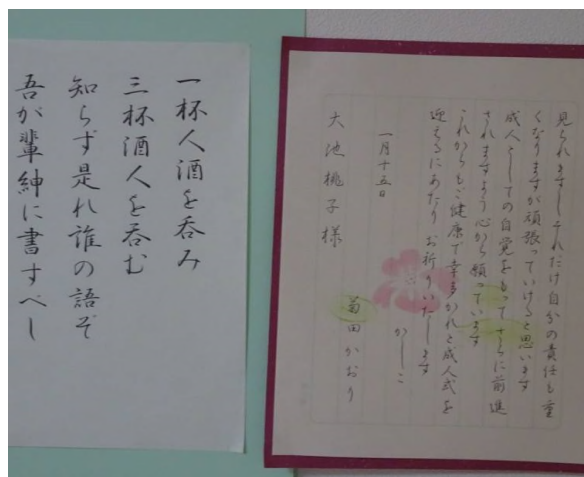 見られますしそれだけ自分の責任も重
くなりますが頑張っていけると思います
成人としての自覚をもってさらに前進
されますよう心から願っています
これからもご健康で幸多かれと成人式を
迎えるにあたりお祈りいたします
かしこ
一月十五日
菊田かおり
大池桃子様
一杯人酒を呑み
三杯酒人を呑む
知らず是れ誰の語ぞ
吾が輩紳に書すべし